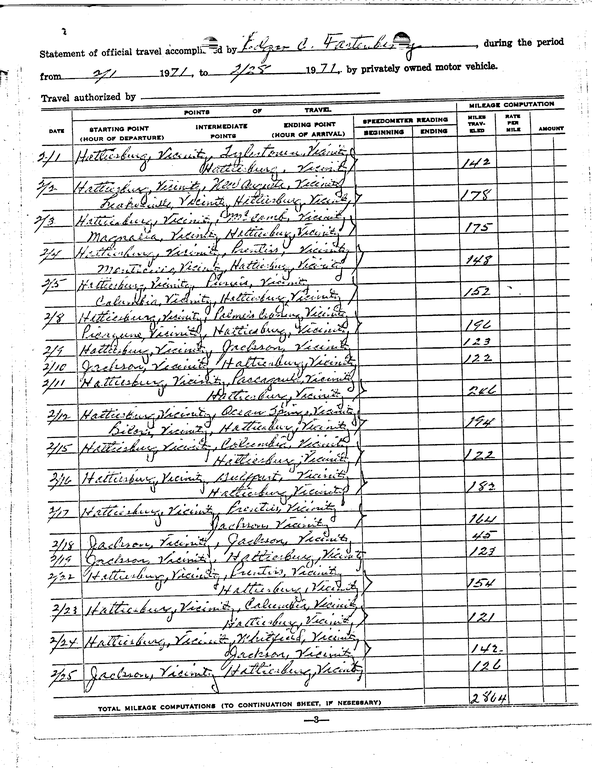 Statement of official travel accomplished by Edgar C. Fortenberry, during the period
from 2/1 1971, to 2/28 1971, by privately owned motor vehicle.
Travel authorized by
POINTS OF TRAVEL
MILEAGE COMPUTATION
DATE
STARTING POINT (HOUR OF DEPARTURE)
INTERMEDIATE POINTS
ENDING POINT (HOUR OF ARRIVAL)
SPEEDOMETER READING
BEGINNING
ENDING
MILES TRAVELED
RATE PER MILE
AMOUNT
2/1 Hattiesburg, Vicinity, Tylertown, Vicinity
Hattiesburg, Vicinity 142
2/2 Hattiesburg, Vicinity, New Augusta, Vicinity
Leakesville, Vicinity, Hattiesburg, Vicinity 178
2/3 Hattiesburg, Vicinity, McComb, Vicinity
Magnolia, Vicinity, Hattiesburg, Vicinity 175
2/4 Hattiesburg, Vicinity, Prentiss, Vicinity
Monticello, Vicinity, Hattiesburg, Vicinity 148
2/5 Hattiesburg, Vicinity, Purvis, Vicinity
Columbia, Vicinity, Hattiesburg, Vicinity 152
2/8 Hattiesburg, Vicinity, Palmers Crossing, Vicinity
Picayune, Vicinity, Hattiesburg, Vicinity 196
2/9 Hattiesburg, Vicinity, Jackson, Vicinity 123
2/10 Jackson, Vicinity, Hattiesburg, Vicinity 122
2/11 Hattiesburg, Vicinity, Pascagoula, Vicinity
Hattiesburg, Vicinity 206
2/12 Hattiesburg, Vicinity, Ocean Springs, Vicinity
Biloxi, Vicinity, Hattiesburg, Vicinity 194
2/15 Hattiesburg, Vicinity, Columbia, Vicinity
Hattiesburg, Vicinity 122
2/16 Hattiesburg, Vicinity, Gulfport, Vicinity
Hattiesburg, Vicinity 182
2/17 Hattiesburg, Vicinity, Prentiss, Vicinity
Jackson, Vicinity 164
2/18 Jackson, Vicinity, Jackson, Vicinity 45
2/19 Jackson, Vicinity, Hattiesburg, Vicinity 123
2/22 Hattiesburg, Vicinity, Prentiss, Vicinity
Hattiesburg, Vicinity 154
2/23 Hattiesburg, Vicinity, Columbia, Vicinity
Hattiesburg, Vicinity 121
2/24 Hattiesburg, Vicinity, Whitfield, Vicinity
Jackson, Vicinity 142
2/25 Jackson, Vicinity, Hattiesburg, Vicinity 126
TOTAL MILEAGE COMPUTATIONS (TO CONTINUATION SHEET, IF NECESSARY) 2864
—3—